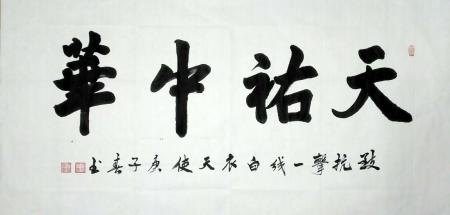 天祐中華
致抗擊一线白衣天使庚子春书